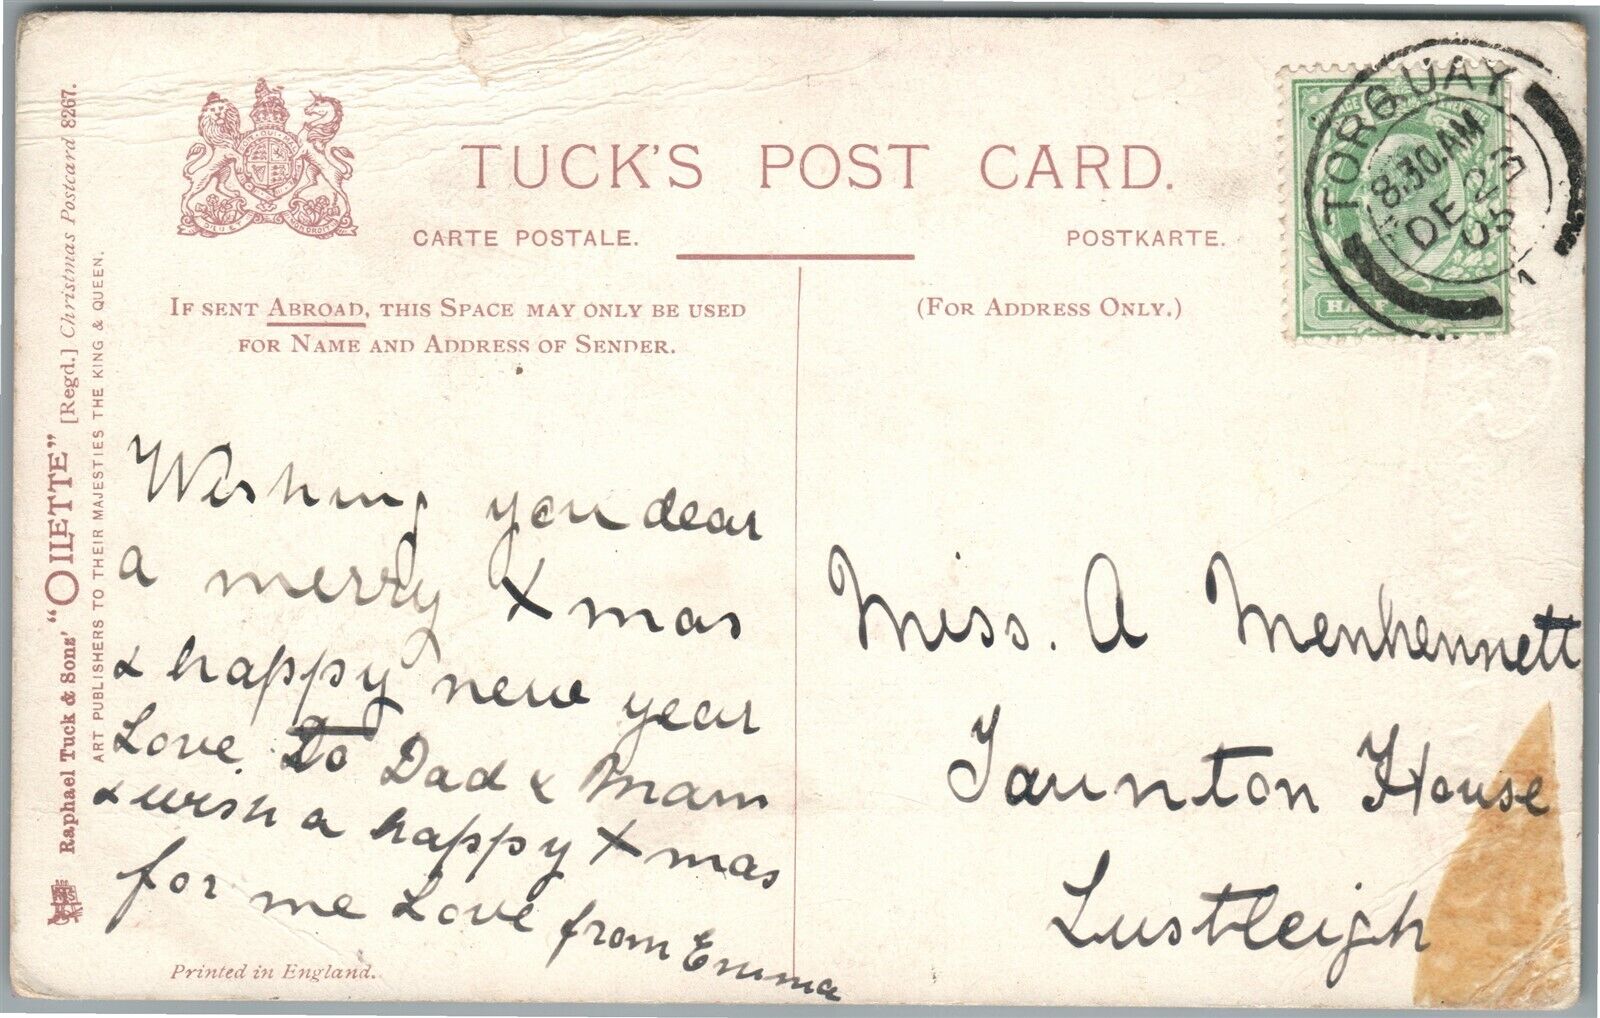 TUCK'S POST CARD.
CARTE POSTALE.
POSTKARTE.
IF SENT ABROAD, THIS SPACE MAY ONLY BE USED
FOR NAME AND ADDRESS OF SENDER.
(FOR ADDRESS ONLY.)
TORQUAY
8.30 AM
DE 23
05
HALF
Raphael Tuck & Sons' "OILETTE" [Regd.] Christmas Postcard 8267.
ART PUBLISHERS TO THEIR MAJESTIES THE KING & QUEEN.
Wishing you dear
a merry Xmas
& happy new year
Love. To Dad & Mam
& wish a happy Xmas
for me Love from Emma
Printed in England.
Miss. A Menhennett
Taunton House
Lustleigh